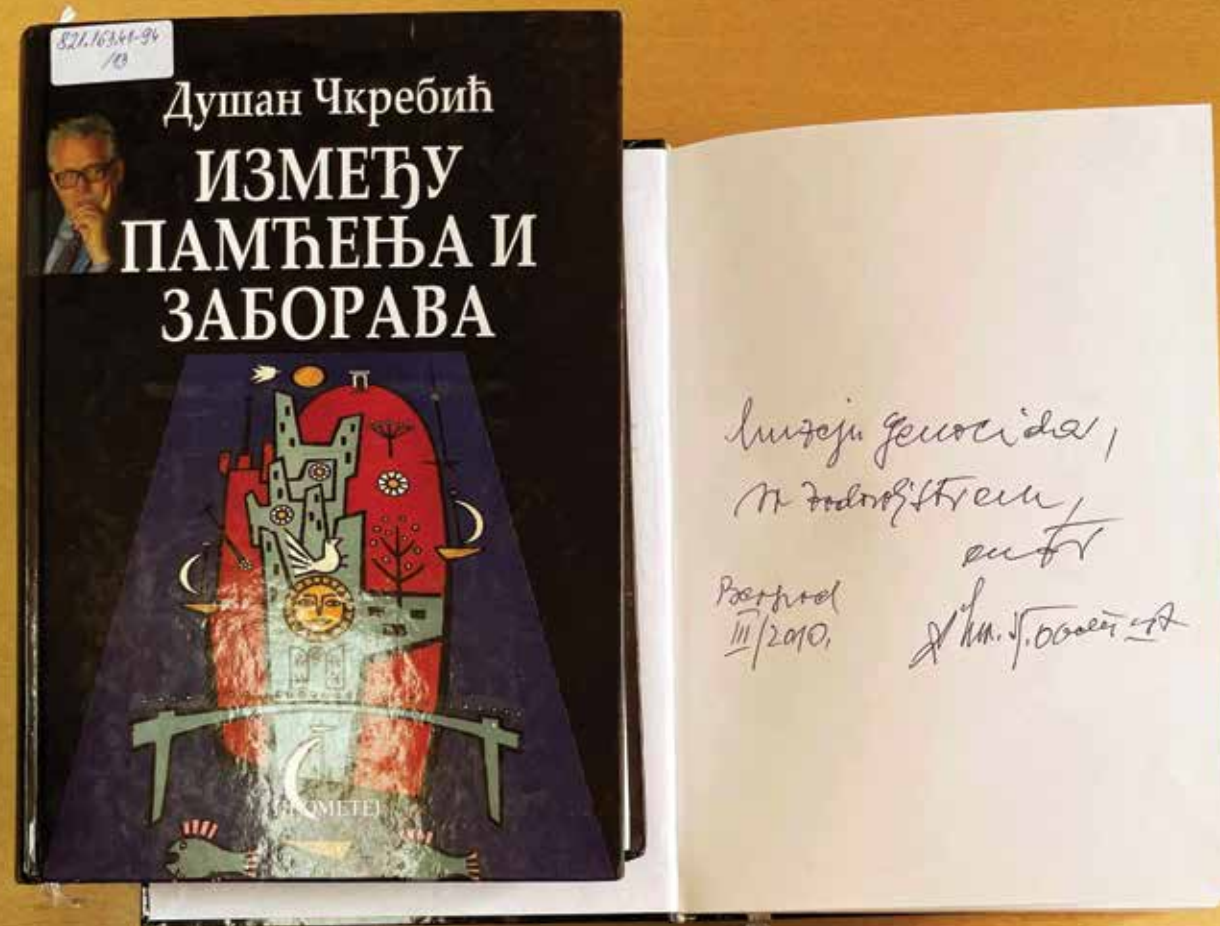 821.163.41-94
/13
Душан Чкребић
ИЗМЕЂУ
ПАМЋЕЊА И
ЗАБОРАВА
ПРОМЕТЕЈ
Muzeju genocida,
sa zadovoljstvom,
autor
Beograd
III/2010.